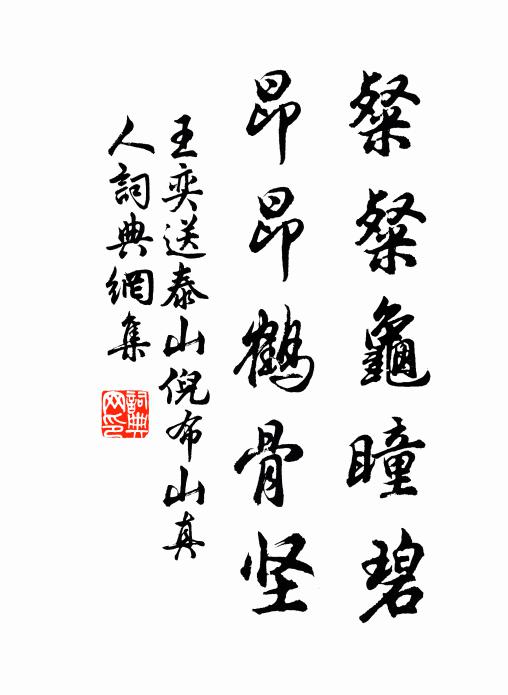 粲粲龜瞳碧
昂昂鶴骨坚
王奕送泰山倪布山真
人詞典網集
詞典网印